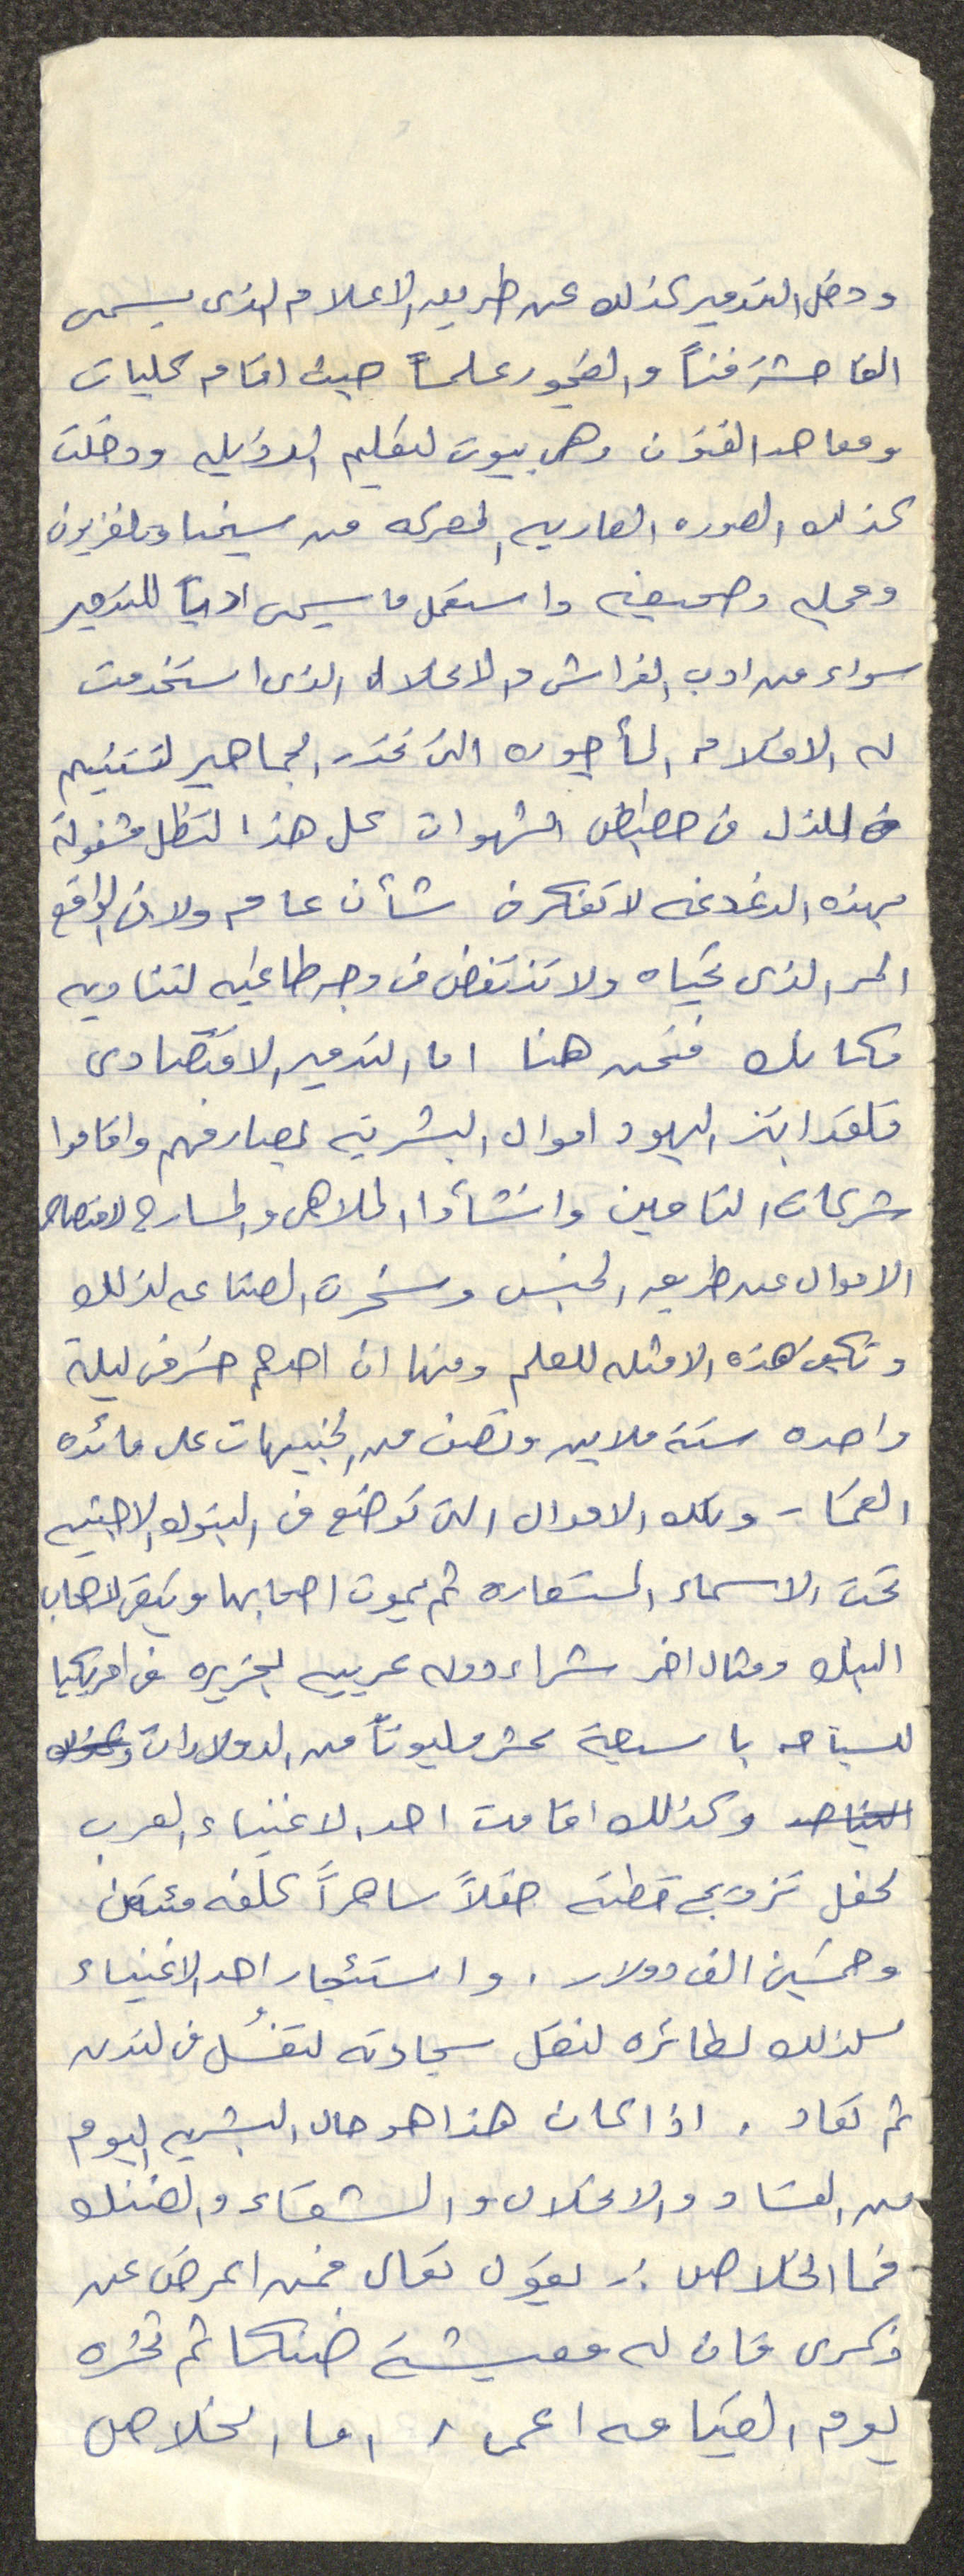 ودخل التدمير كذلك عن طريق الاعلام الذى يسمى
الفاحشة فناً والفجور علماً حيث اقام كليات
ومعاهد الفنون وهى بيوت لتعليم الرذيله ودخلت
كذلك الصوره العاريه المحركه من سينما وتلفزيون
ومجله وصحيفه واستعمل ما يسمى ادباً للتدمير
سواء من ادب الفراش والانحلال الذى استخدمت
له الاقلام المأجوره التى تخدر الجماهير لتستنيم
للذل فى حضيض الشهوات كل هذا لتظل مشغولة
بهذه الدغدغه لا تفكر فى شأن عام ولا فى الواقع
المر الذى تحياه ولا تنتفض فى وجه طاغيه لتناديه
مكانك فنحن هنا اما التدمير الاقتصادى
فلقد ابتز اليهود اموال البشرية بمصارفهم واقاموا
شركات التامين وانشأوا الملاهى والمسارح لامتصاص
الاموال عن طريق الجنس وسخرت الصناعه لذلك
وتكفى هذه الامثله للعلم ومنها ان احدهم خسر فى ليلة
واحده ستة ملايين ونصف من الجنيهات على مائده
القمار وتلك الاموال التى توضع فى البنوك الاجنبيه
تحت الاسماء المستعاره ثم يموت اصحابها وتبقى لاصحاب
البنك ومثال اخر شراء دوله عربيه لجزيره فى امريكيا
للسياحه با سبعة عشر مليوناً من الدولارات
وكذلك اقامت احد الاغنياء العرب
لحفل تزويج قطته حفلاً ساهراً تكلفه مئتين
وخمسين الف دولار . واستئجار احد الاغنياء
كذلك لطائره لنقل سجادته لتغسُل فى لندن
ثم تعاد . اذا كان هذا هو حال البشريه اليوم
من الفساد والانحلال والشقاء والضنك
فما الخلاص :ـ يقول تعالى فمن اعرض عن
ذكرى فان له معيشة ضنكا ثم نحشره
يوم القيامه اعمى / اما الخلاص